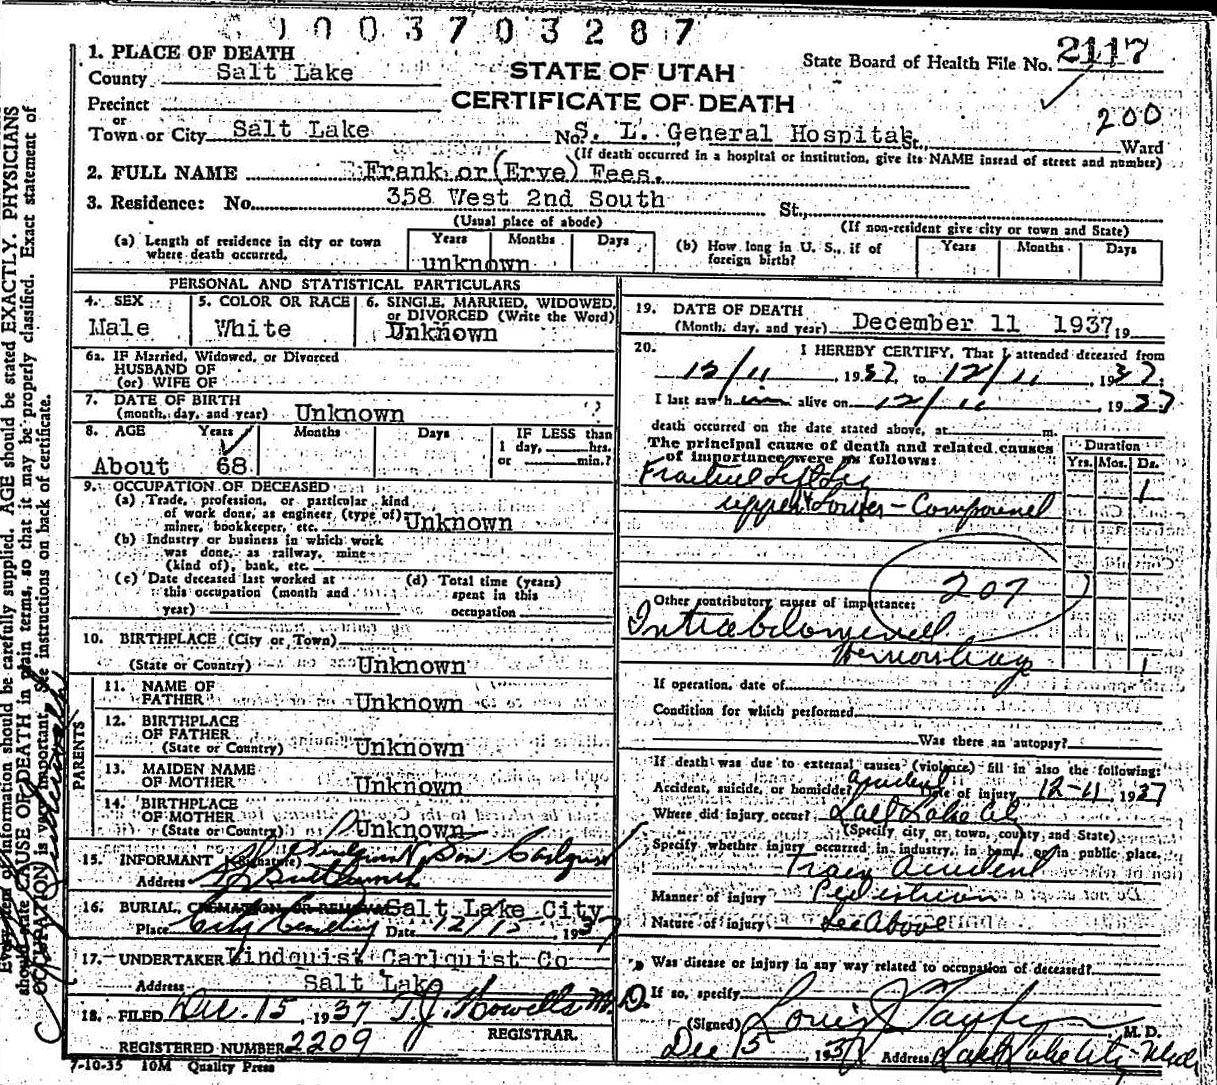 1003703287
1. PLACE OF DEATH
County Salt Lake
STATE OF UTAH
State Board of Health File No. 2117
Precinct
CERTIFICATE OF DEATH
200
or
Town or City Salt Lake No. S. L. General Hospital St., Ward
(If death occurred in a hospital or institution, give its NAME instead of street and number)
2. FULL NAME Frank or (Erve) Fees.
3. Residence: No. 358 West 2nd South St.,
(Usual place of abode) (If non-resident give city or town and State)
(a) Length of residence in city or town where death occurred. Years Months Days
unknown
(b) How long in U. S., if of foreign birth? Years Months Days
PERSONAL AND STATISTICAL PARTICULARS
4. SEX 5. COLOR OR RACE 6. SINGLE, MARRIED, WIDOWED, or DIVORCED (Write the Word)
Male White Unknown
6a. IF Married, Widowed, or Divorced
HUSBAND OF
(or) WIFE OF
7. DATE OF BIRTH
(month, day, and year) Unknown
8. AGE Years Months Days IF LESS than
1 day, hrs.
or min.?
About 68
9. OCCUPATION OF DECEASED
(a) Trade, profession, or particular kind
of work done, as engineer, (type of)
miner, bookkeeper, etc. Unknown
(b) Industry or business in which work
was done, as railway, mine
(kind of), bank, etc.
(c) Date deceased last worked at
this occupation (month and
year)
(d) Total time (years)
spent in this
occupation
10. BIRTHPLACE (City or Town)
(State or Country) Unknown
PARENTS
11. NAME OF
FATHER Unknown
12. BIRTHPLACE
OF FATHER
(State or Country) Unknown
13. MAIDEN NAME
OF MOTHER Unknown
14. BIRTHPLACE
OF MOTHER
(State or Country) Unknown
15. INFORMANT
(Signature)
Address
16. BURIAL, CREMATION OR REMOVAL Salt Lake City
Place City Cemetery Date 12/15 1937
17. UNDERTAKER Vindquist Carlquist Co
Address Salt Lake
18. FILED Dec. 15, 1937 T. J. Howells M. D.
REGISTRAR.
REGISTERED NUMBER 2209
7-10-35 10M Quality Press
19. DATE OF DEATH
(Month, day, and year) December 11 1937 19
20. I HEREBY CERTIFY, That I attended deceased from
12/11, 1937, to 12/11, 1937;
I last saw him alive on 12/11, 1937
death occurred on the date stated above, at m.
The principal cause of death and related causes
of importance were as follows:
Duration
Yrs. Mos. Ds.
Fracture Left Leg 1
upper & Lower - Compound
207
Other contributory causes of importance:
Intra abdominal
Hemorrhage 1
If operation, date of
Condition for which performed
Was there an autopsy?
If death was due to external causes (violence) fill in also the following:
Accident, suicide, or homicide? accident Date of injury 12-11 1937
Where did injury occur? Salt Lake City
(Specify city or town, county and State)
Specify whether injury occurred in industry, in home, or in public place.
accident
Manner of injury Pedestrian
Nature of injury See Above
Was disease or injury in any way related to occupation of deceased?
If so, specify
(Signed) Louis J Taufer M. D.
Dec 15, 1937 Address Salt Lake City Utah
Every item of information should be carefully supplied. AGE should be stated EXACTLY. PHYSICIANS
should state CAUSE OF DEATH in plain terms, so that it may be properly classified. Exact statement of
OCCUPATION is very important. See instructions on back of certificate.